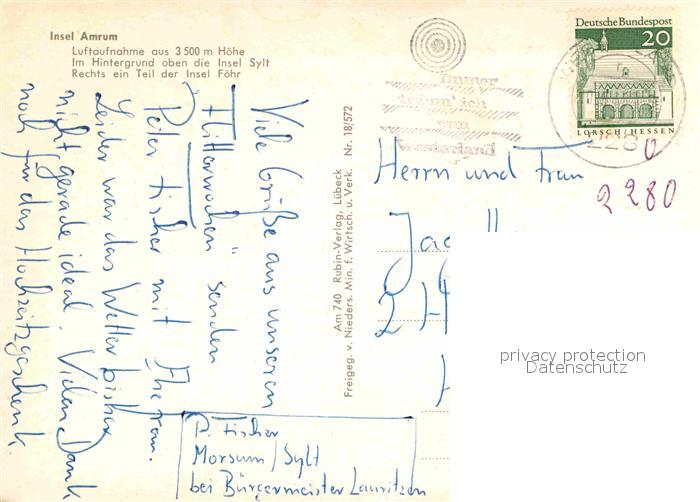 Insel Amrum
Luftaufnahme aus 3500 m Höhe
Im Hintergrund oben die Insel Sylt
Rechts ein Teil der Insel Föhr
Viele Grüße aus unseren
"Flitterwochen" senden
Peter Fischer mit Ehefrau.
Leider war das Wetter bisher
nicht gerade ideal. Vielen Dank
noch für das Hochzeitsgeschenk.
P. Fischer
Morsum/Sylt
bei Bürgermeister Lauritzen
Am 740 Rubin-Verlag, Lübeck
Freigeg. v. Nieders. Min. f. Wirtsch. u. Verk. Nr. 18/572
Immer
träum' ich
von
Westerland
Deutsche Bundespost
20
LORSCH/HESSEN
2280
2280
Herrn und Frau
privacy protection
Datenschutz